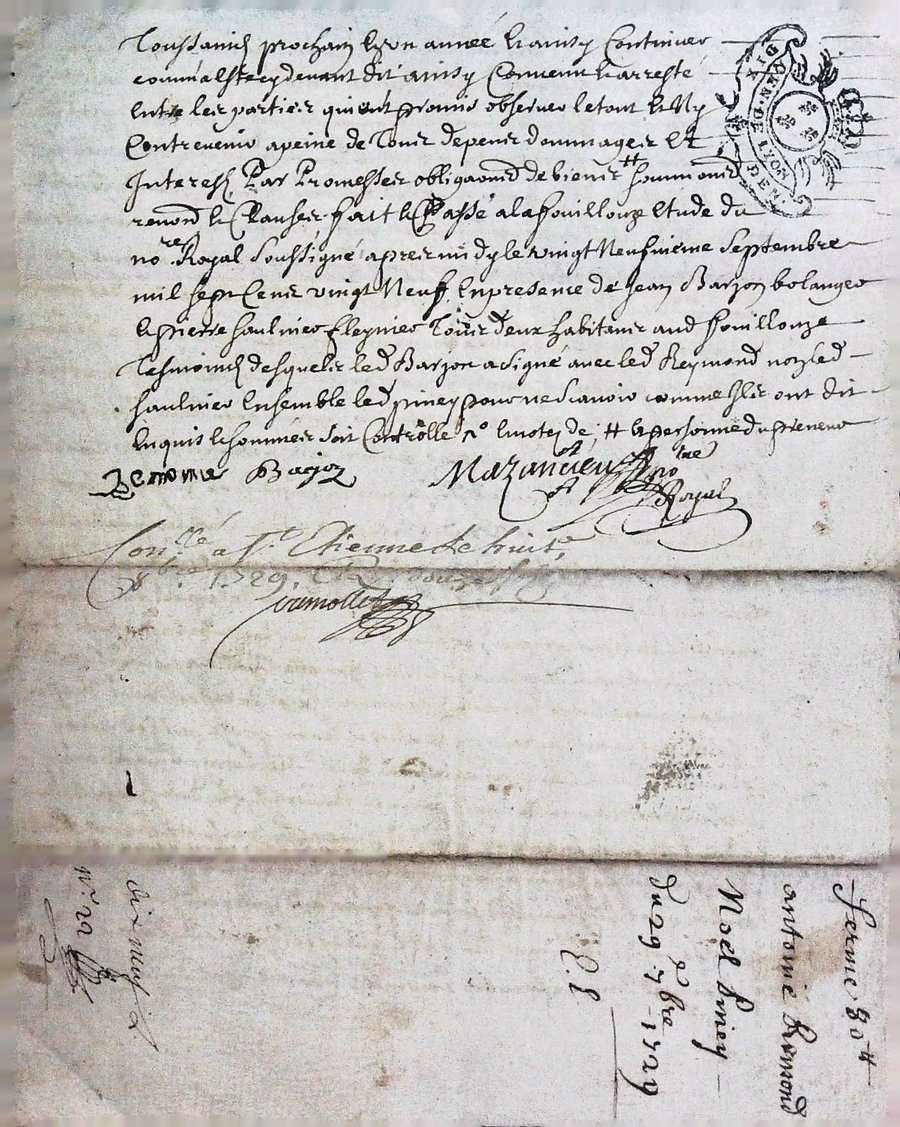 Toussaind prochain & son année & ainsy Continuer
comm'alst cydevant dit ainsy Convenu & arresté
Entre les parties qui ont promis observer le tout & N'y
Contrevenir a peine de Tous depens dommages Et
Interest Par Promesses obligaond de biens # soumiond
renond & Clauses fait & Passé a la fouillouze Etude du
nore Royal soussigné apres midy le vingt Neufvieme Septembre
mil sept Cens vingt Neuf, En presence de Jean Barjon bolanger
& pierre faulnier Tous deux habitans aud fouillouze
Tesmoind desquels led Barjon a signé avec led Reymond non led
faulnier Ensemble led piney pour ne scavoir comme Ils ont dit
Enquis & sommés soit Controllé # & personne du preneur
Barjon
Mazancieu nore
Royal
Conllé a St. Etienne le huit
8bre 1729.
ferme 80#
antoine Remond
Noël piney
du 29 7bre 1729